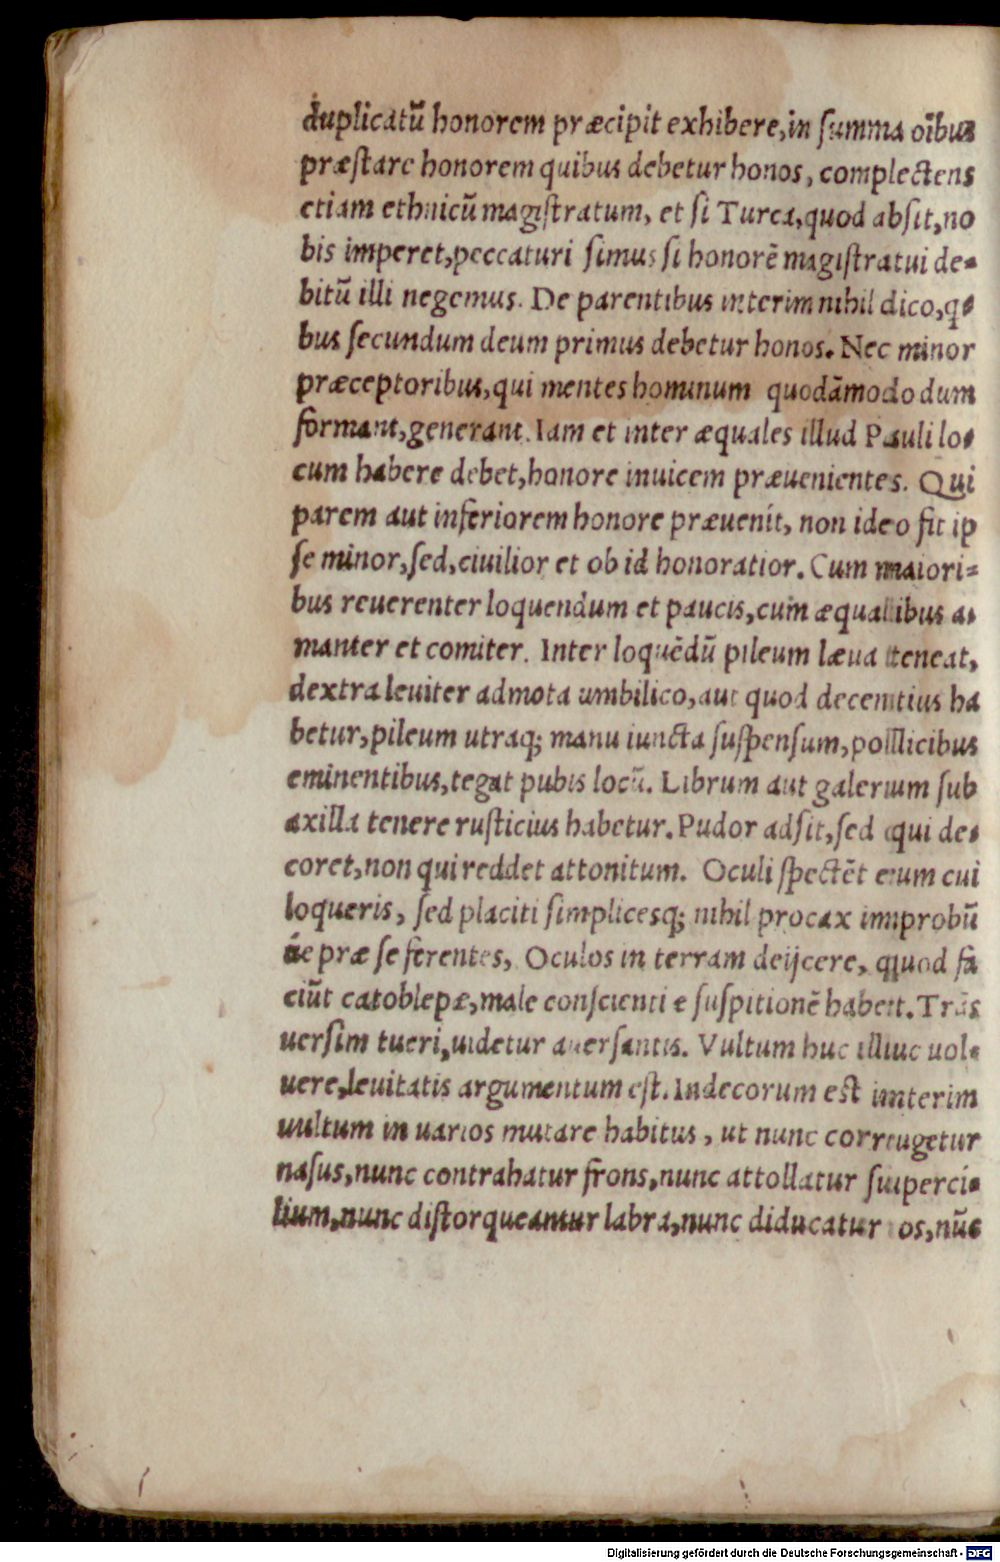 duplicatū honorem præcipit exhibere, in ſumma oībus
præſtare honorem quibus debetur honos, complectens
etiam ethnicū magiſtratum, et ſi Turca, quod abſit, no
bis imperet, peccaturi ſimus ſi honorē magiſtratui de-
bitū illi negemus. De parentibus interim nihil dico, qi
bus ſecundum deum primus debetur honos. Nec minor
præceptoribus, qui mentes hominum quodāmodo dum
formant, generant. Iam et inter æquales illud Pauli lo-
cum habere debet, honore inuicem præuenientes. Qui
parem aut inferiorem honore præuenit, non ideo fit ip
ſe minor, ſed, ciuilior et ob id honoratior. Cum maiori-
bus reuerenter loquendum et paucis, cum æqualibus a-
manter et comiter. Inter loquēdū pileum læua teneat,
dextra leuiter admota umbilico, aut quod decentius ha
betur, pileum utraq; manu iuncta ſuſpenſum, pollicibus
eminentibus, tegat pubis locū. Librum aut galerum ſub
axilla tenere ruſticius habetur. Pudor adſit, ſed qui de-
coret, non qui reddet attonitum. Oculi ſpectēt eum cui
loqueris, ſed placiti ſimplicesq; nihil procax improbū
úe præ ſe ferentes, Oculos in terram deijcere, quod fa
ciūt catoblepæ, male conſcientie ſuſpitionē habet. Trās
uerſim tueri, uidetur auerſantis. Vultum huc illuc uol-
uere, leuitatis argumentum eſt. Indecorum eſt interim
uultum in uarios mutare habitus, ut nunc corrugetur
naſus, nunc contrahatur frons, nunc attollatur ſuperci-
lium, nunc diſtorqueantur labra, nunc diducatur os, nūc
Digitalisierung gefördert durch die Deutsche Forschungsgemeinschaft - DFG